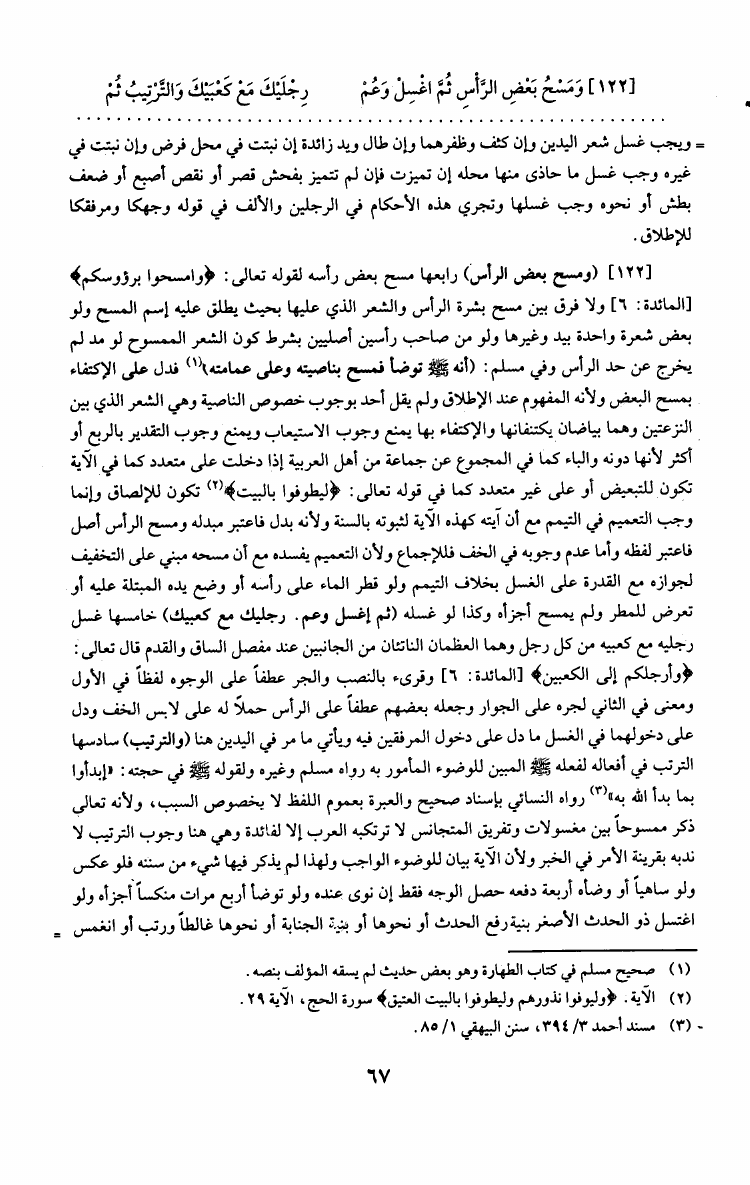 [١٢٢] وَمَسْحُ بَعْضِ الرَّأْسِ ثُمَّ اغْسِلْ وَعُمْ رِجْلَيْكَ مَعْ كَعْبَيْكَ وَالتَّرْتِيبُ ثُمْ
= ويجب غسل شعر اليدين وإن كثف وظفرهما وإن طال ويد زائدة إن نبتت في محل فرض وإن نبتت في
غيره وجب غسل ما حاذى منها محله إن تميزت فإن لم تتميز بفحش قصر أو نقص أصبع أو ضعف
بطش أو نحوه وجب غسلها وتجري هذه الأحكام في الرجلين والألف في قوله وجهكا ومرفقكا
للإطلاق.
[١٢٢] (ومسح بعض الرأس) رابعها مسح بعض رأسه لقوله تعالى: ﴿وامسحوا برؤوسكم﴾
[المائدة: ٦] ولا فرق بين مسح بشرة الرأس والشعر الذي عليها بحيث يطلق عليه إسم المسح ولو
بعض شعرة واحدة بيد وغيرها ولو من صاحب رأسين أصليين بشرط كون الشعر الممسوح لو مد لم
يخرج عن حد الرأس وفي مسلم: (أنه ﷺ توضأ فمسح بناصيته وعلى عمامته)(١) فدل على الإكتفاء
بمسح البعض ولأنه المفهوم عند الإطلاق ولم يقل أحد بوجوب خصوص الناصية وهي الشعر الذي بين
النزعتين وهما بياضان يكتنفانها والإكتفاء بها يمنع وجوب الاستيعاب ويمنع وجوب التقدير بالربع أو
أكثر لأنها دونه والباء كما في المجموع عن جماعة من أهل العربية إذا دخلت على متعدد كما في الآية
تكون للتبعيض أو على غير متعدد كما في قوله تعالى: ﴿ليطوفوا بالبيت﴾(٢) تكون للإلصاق وإنما
وجب التعميم في التيمم مع أن آيته كهذه الآية لثبوته بالسنة ولأنه بدل فاعتبر مبدله ومسح الرأس أصل
فاعتبر لفظه وأما عدم وجوبه في الخف فللإجماع ولأن التعميم يفسده مع أن مسحه مبني على التخفيف
لجوازه مع القدرة على الغسل بخلاف التيمم ولو قطر الماء على رأسه أو وضع يده المبتلة عليه أو
تعرض للمطر ولم يمسح أجزأه وكذا لو غسله (ثم إغسل وعم. رجليك مع كعبيك) خامسها غسل
رجليه مع كعبيه من كل رجل وهما العظمان الناتئان من الجانبين عند مفصل الساق والقدم قال تعالى:
﴿وأرجلكم إلى الكعبين﴾ [المائدة: ٦] وقرىء بالنصب والجر عطفاً على الوجوه لفظاً في الأول
ومعنى في الثاني لجره على الجوار وجعله بعضهم عطفاً على الرأس حملاً له على لابس الخف ودل
على دخولهما في الغسل ما دل على دخول المرفقين فيه ويأتي ما مر في اليدين هنا (والترتيب) سادسها
الترتب في أفعاله لفعله ﷺ المبين للوضوء المأمور به رواه مسلم وغيره ولقوله ﷺ في حجته: «إبدأوا
بما بدأ الله به»(٣) رواه النسائي بإسناد صحيح والعبرة بعموم اللفظ لا بخصوص السبب، ولأنه تعالى
ذكر ممسوحاً بين مغسولات وتفريق المتجانس لا ترتكبه العرب إلا لفائدة وهي هنا وجوب الترتيب لا
ندبه بقرينة الأمر في الخبر ولأن الآية بيان للوضوء الواجب ولهذا لم يذكر فيها شيء من سننه فلو عكس
ولو ساهياً أو وضأه أربعة دفعه حصل الوجه فقط إن نوى عنده ولو توضأ أربع مرات منكساً أجزأه ولو
اغتسل ذو الحدث الأصغر بنية رفع الحدث أو نحوها أو بنية الجنابة أو نحوها غالطاً ورتب أو انغمس =
(١) صحيح مسلم في كتاب الطهارة وهو بعض حديث لم يسقه المؤلف بنصه.
(٢) الآية. ﴿وليوفوا نذورهم وليطوفوا بالبيت العتيق﴾ سورة الحج، الآية ٢٩.
(٣) مسند أحمد ٣/ ٣٩٤، سنن البيهقي ١/ ٨٥.
٦٧